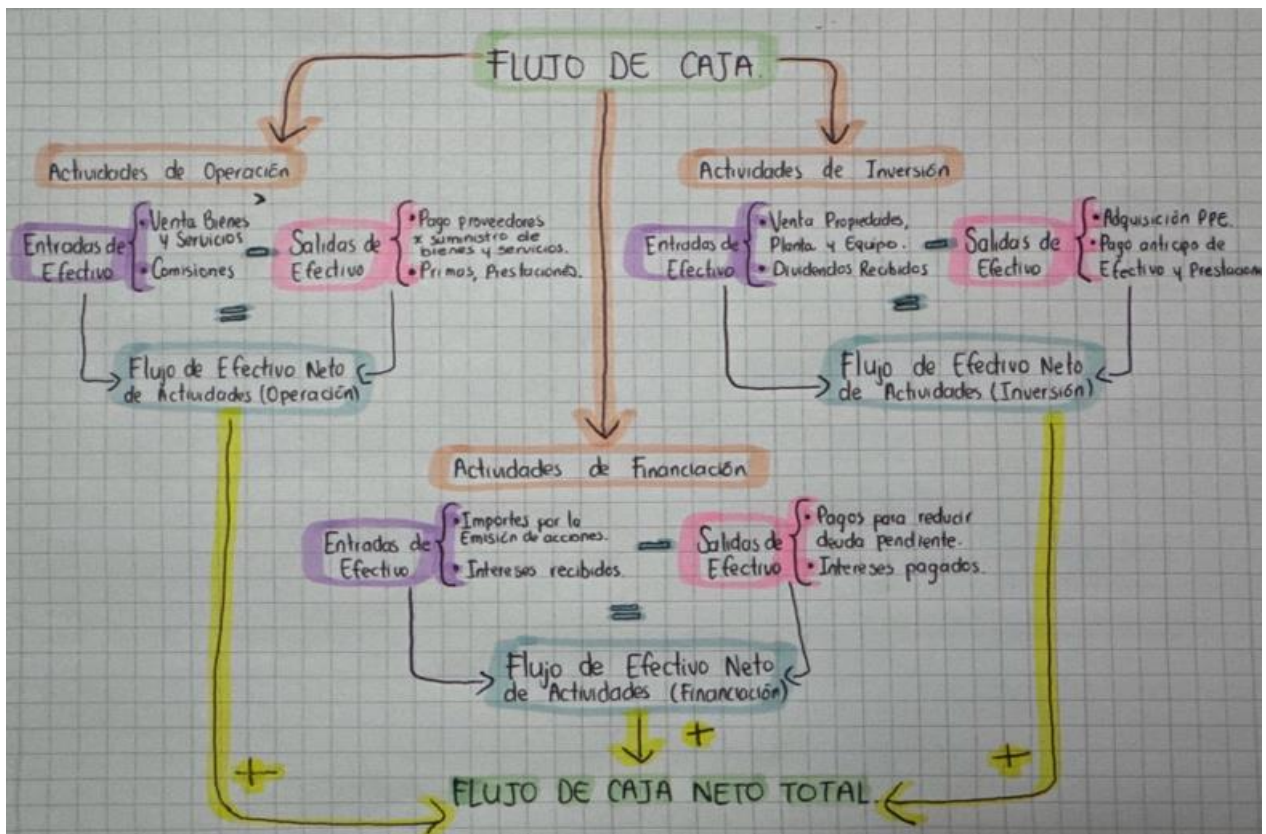 FLUJO DE CAJA.
Actividades de Operación
Entradas de
Efectivo
• Venta Bienes
y Servicios
• Comisiones
-
Salidas de
Efectivo
• Pago proveedores
x suministro de
bienes y servicios.
• Primas, Prestaciones.
=
Flujo de Efectivo Neto
de Actividades (Operación)
Actividades de Inversión
Entradas de
Efectivo
• Venta Propiedades,
Planta y Equipo.
• Dividendos Recibidos
-
Salidas de
Efectivo
• Adquisición PPE.
• Pago anticipo de
Efectivo y
=
Flujo de Efectivo Neto
de Actividades (Inversión)
Actividades de Financiación
Entradas de
Efectivo
• Importes por la
Emisión de acciones.
• Intereses recibidos.
-
Salidas de
Efectivo
• Pagos para reducir
deuda pendiente.
• Intereses pagados.
=
Flujo de Efectivo Neto
de Actividades (Financiación)
+
+
+
FLUJO DE CAJA NETO TOTAL.